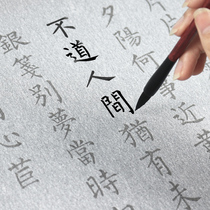 片片
夕陽何事近黃
不道人間猶有未
銀箋別夢當時
心苣